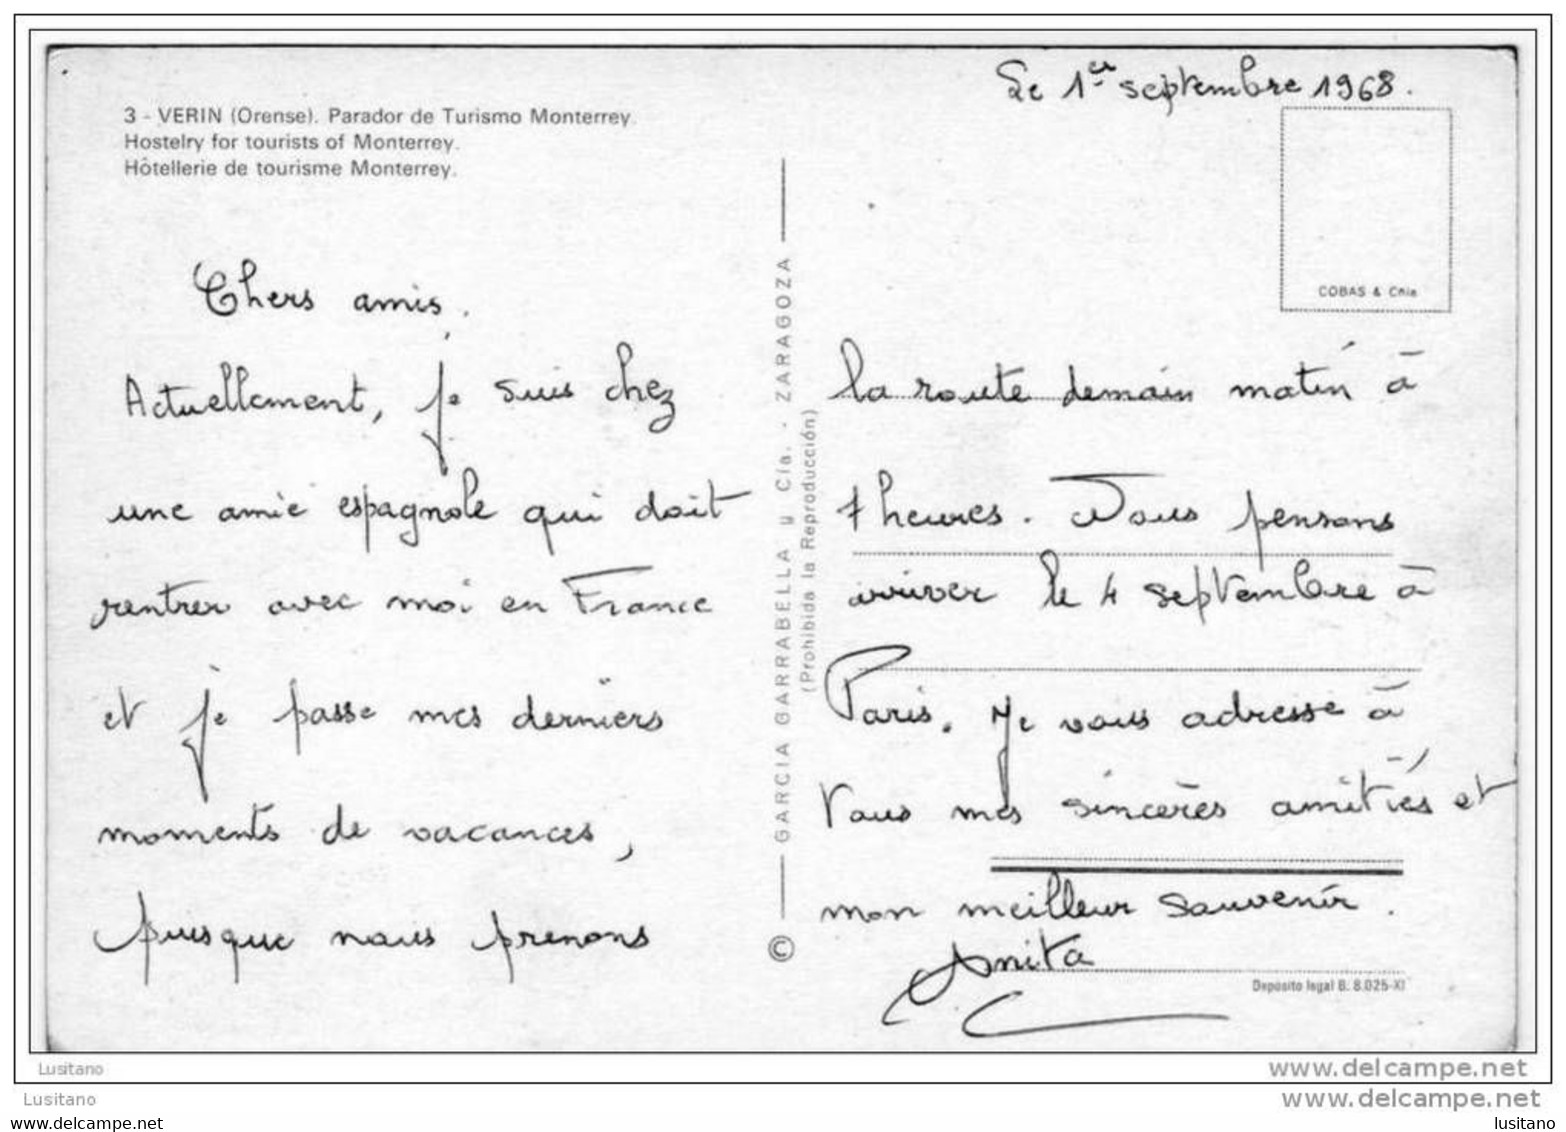 Le 1er septembre 1968.
3 - VERIN (Orense). Parador de Turismo Monterrey.
Hostelry for tourists of Monterrey.
Hôtellerie de tourisme Monterrey.
COBAS & Chia
Chers amis,
Actuellement, je suis chez
une amie espagnole qui doit
rentrer avec moi en France
et je passe mes derniers
moments de vacances,
puisque nous prenons
GARCIA GARRABELLA y Cía. - ZARAGOZA
(Prohibida la Reproducción)
©
la route demain matin à
7 heures. Nous pensons
arriver le 4 septembre à
Paris. Je vous adresse à
tous mes sincères amitiés et
mon meilleur souvenir.
Anita
Depósito legal B. 8.025-XI
Lusitano
www.delcampe.net
Lusitano
www.delcampe.net
www.delcampe.net
lusitano